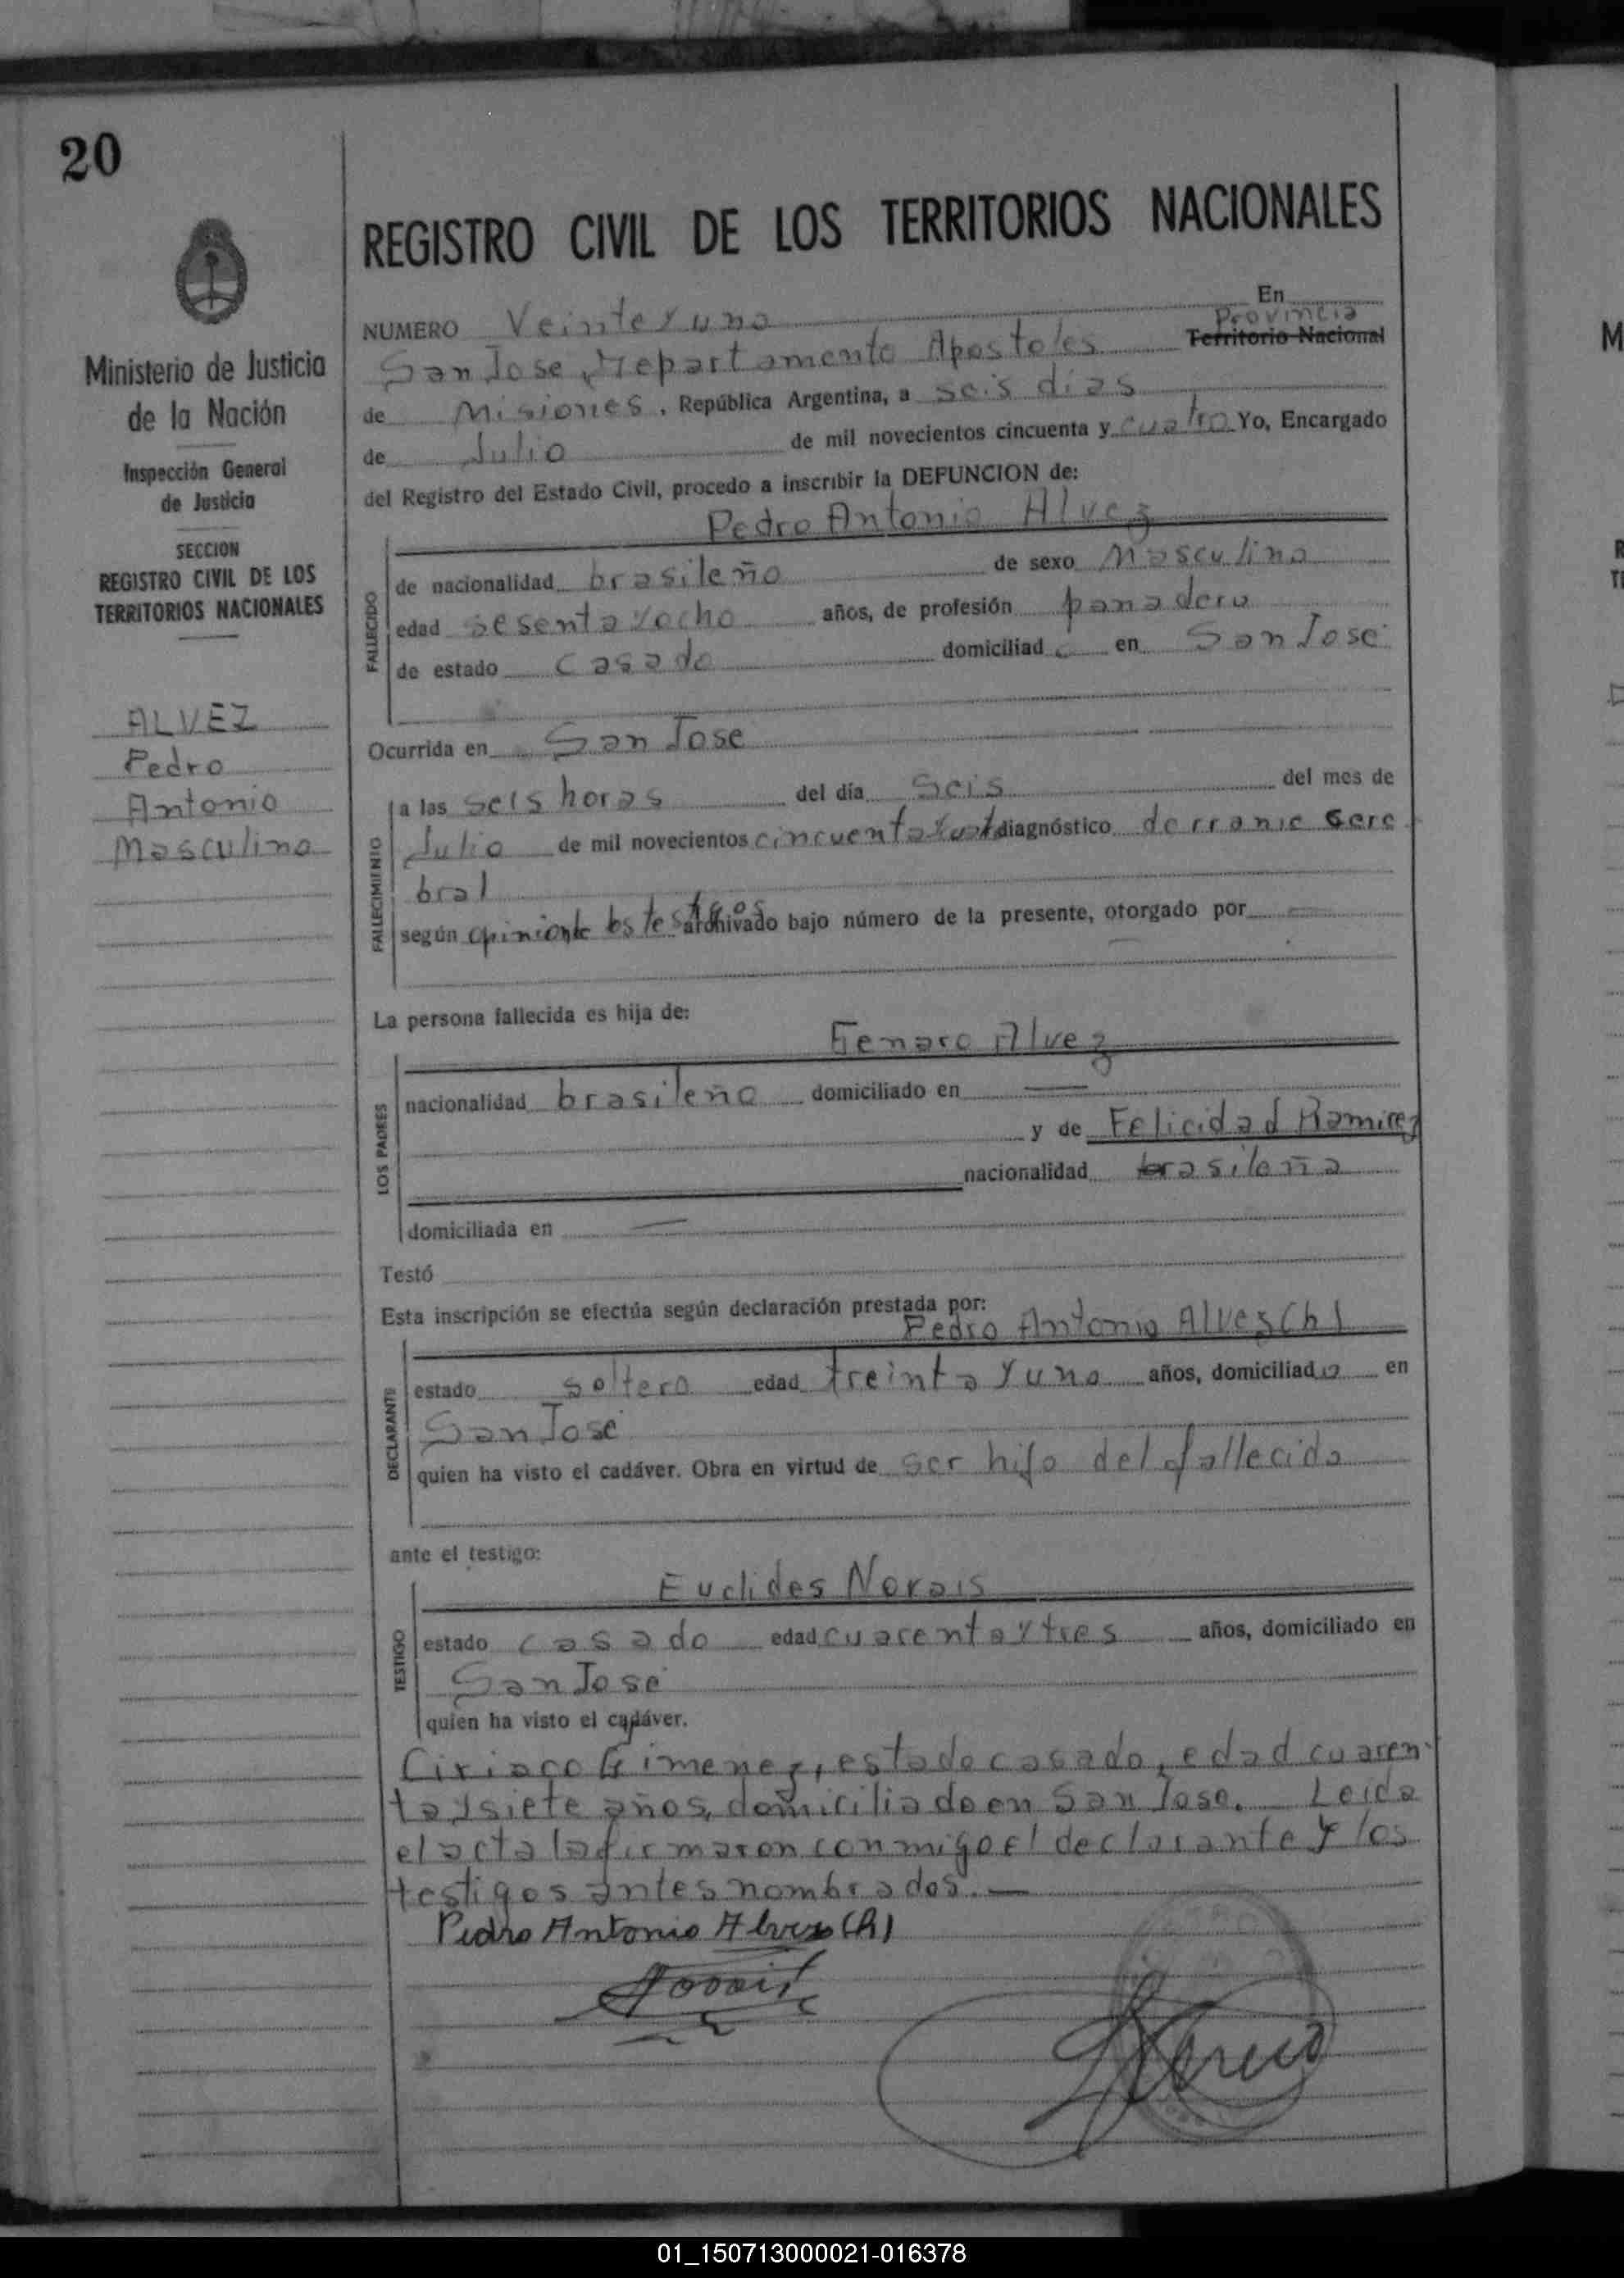 20
REGISTRO CIVIL DE LOS TERRITORIOS NACIONALES
Ministerio de Justicia
de la Nación
Inspección General
de Justicia
SECCION
REGISTRO CIVIL DE LOS
TERRITORIOS NACIONALES
ALVEZ
Pedro
Antonio
Masculino
NUMERO Veinte y uno En
San Jose, Departamento Apostoles Provincia Territorio Nacional
de Misiones, República Argentina, a seis dias
de Julio de mil novecientos cincuenta y cuatro Yo, Encargado
del Registro del Estado Civil, procedo a inscribir la DEFUNCION de:
Pedro Antonio Alvez
FALLECIDO
de nacionalidad brasileño de sexo Masculino
edad sesenta y ocho años, de profesión panadero
de estado casado domiciliad o en San José
Ocurrida en San Jose
FALLECIMIENTO
a las seis horas del día seis del mes de
Julio de mil novecientos cincuenta y diagnóstico derrame cere
bral
según opinion de los testigos archivado bajo número de la presente, otorgado por
La persona fallecida es hija de:
Genaro Alvez
LOS PADRES
nacionalidad brasileño domiciliado en
y de Felicidad Ramirez
nacionalidad brasileña
domiciliada en
Testó
Esta inscripción se efectúa según declaración prestada por:
Pedro Antonio Alvez (h)
DECLARANTE
estado soltero edad treinta y uno años, domiciliado en
San José
quien ha visto el cadáver. Obra en virtud de ser hijo del fallecido
ante el testigo:
Euclides Norais
TESTIGO
estado casado edad cuarenta y tres años, domiciliado en
San José
quien ha visto el cadáver.
Ciriaco Gimenez, estado casado, edad cuaren
ta y siete años, domiciliado en San Jose. Leida
el acta la firmaron conmigo el declarante y los
testigos antes nombrados.—
Pedro Antonio Alvez (h)
01_150713000021-016378